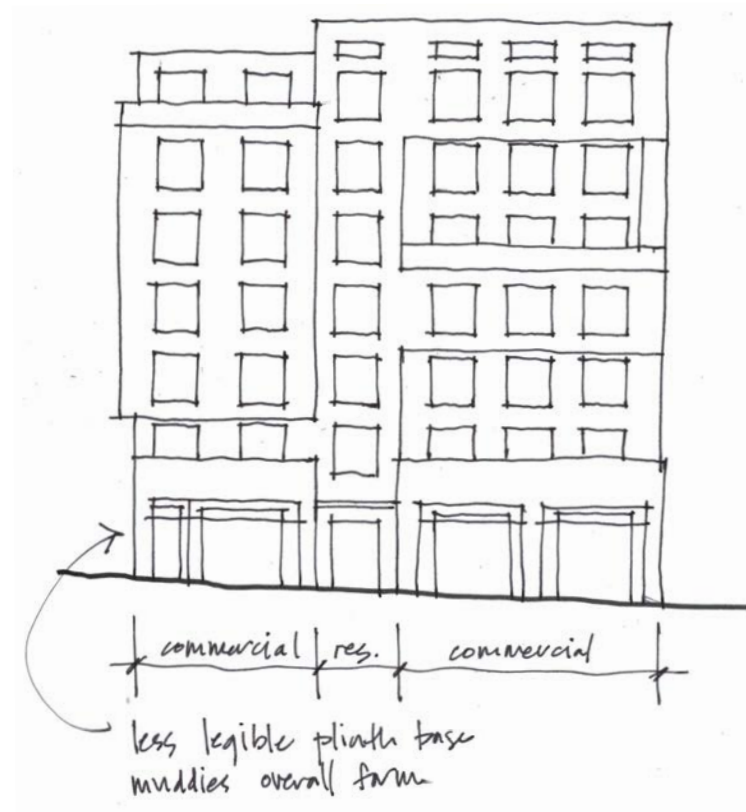 commercial res. commercial
less legible plinth base
muddies overall form